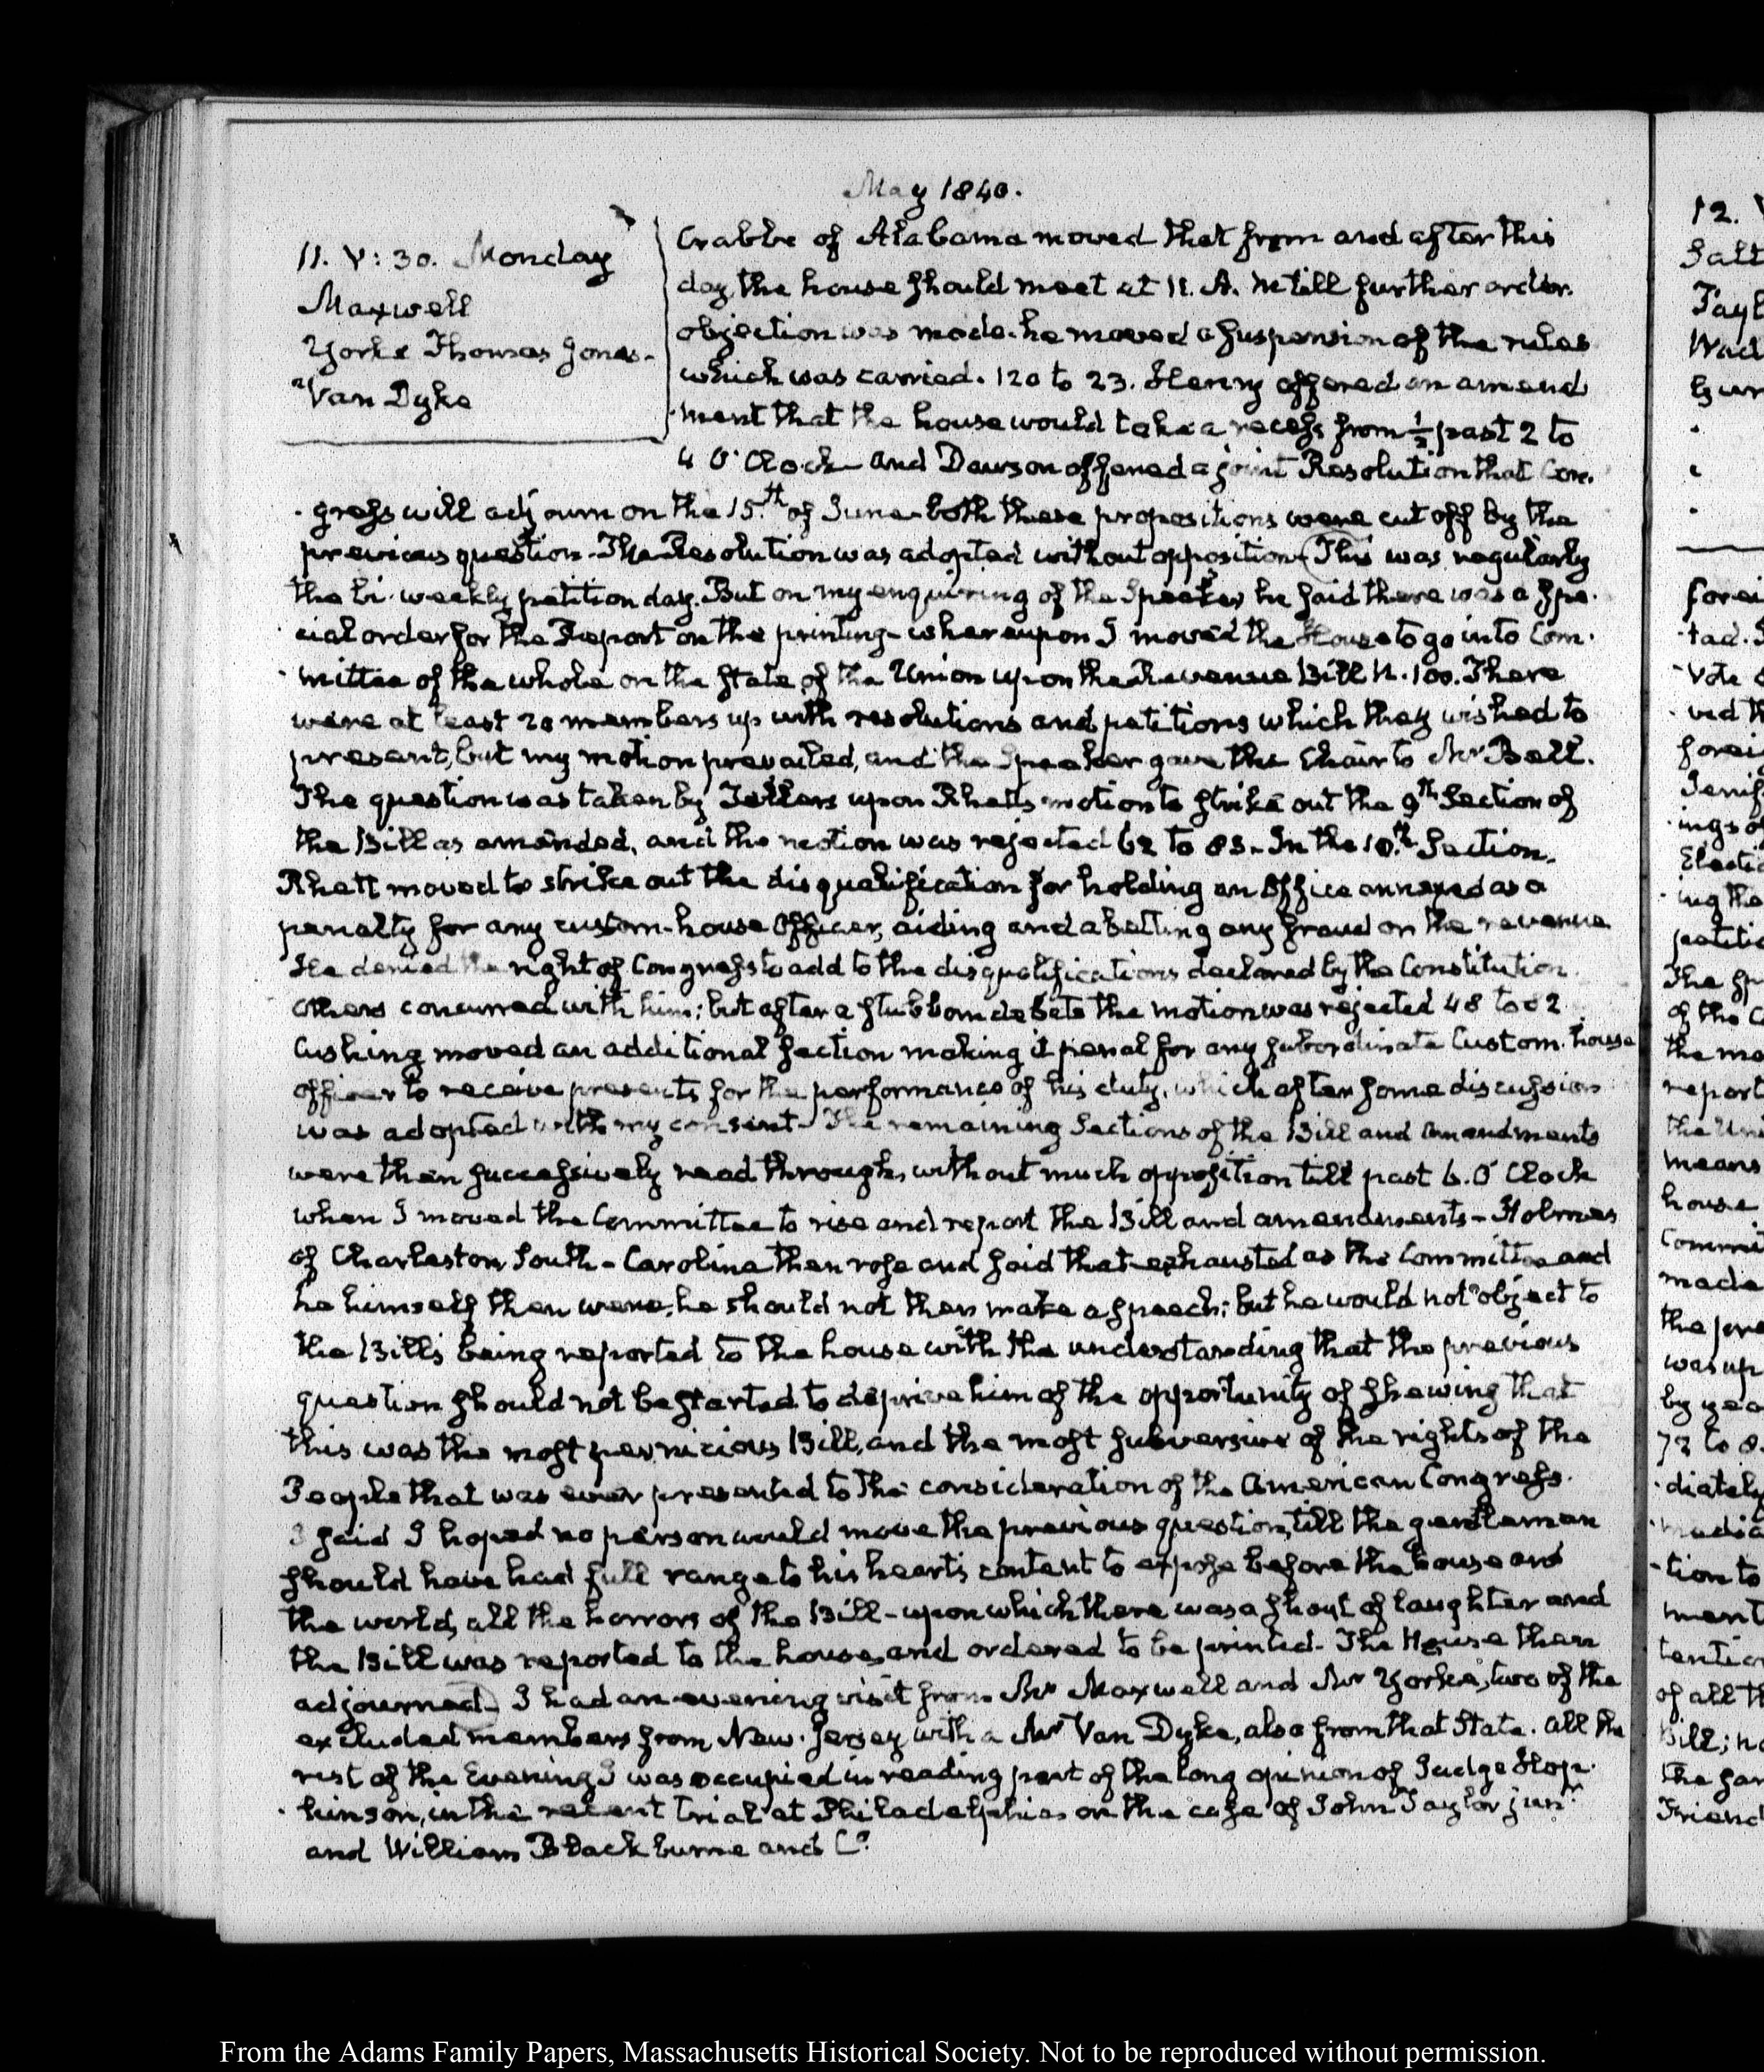 May 1840.
11. V: 30. Monday
Maxwell
Yorke Thomas Jones.
Van Dyke
Crabbe of Alabama moved that from and after this
day, the house should meet at 11. A. M till further order.
objection was made. he moved a suspension of the rules
which was carried. 120 to 23. Henry offered an amend
ment that the house would take a recess from ½ past 2 to
4 O'Clock and Dawson offered a joint Resolution that Con-
gress will adjourn on the 15th of June - both these propositions were cut off by the
previous question - The Resolution was adopted without opposition (This was regularly
the bi-weekly petition day. But on my enquiring of the Speaker he said there was a spe-
cial order for the Report on the printing - whereupon I moved the House to go into Com-
mittee of the whole on the state of the Union upon the Revenue Bill N. 100. There
were at least 20 members up with resolutions and petitions which they wished to
present, but my motion prevailed, and the Speaker gave the Chair to Mr Bell.
The question was taken by Tellers upon Rhett's motion to strike out the 9th Section of
the Bill as amended, and the motion was rejected 62 to 83 - In the 10th Section,
Rhett moved to strike out the disqualification for holding an Office annexed as a
penalty for any custom-house Officer, aiding and abetting any fraud on the revenue
He denied the right of Congress to add to the disqualifications declared by the Constitution.
others concurred with him; but after a stubborn debate the motion was rejected 48 to 82
Cushing moved an additional section making it penal for any subordinate Custom-house
officer to receive presents for the performance of his duty, which after some discussion
was adopted with my consent - The remaining Sections of the Bill and Amendments
were then successively read through, without much opposition till past 6. O'Clock
when I moved the Committee to rise and report the Bill and amendments - Holmes
of Charleston South-Carolina then rose and said that exhausted as the Committee and
he himself then were, he should not then make a speech; but he would not object to
the Bill's being reported to the house with the understanding that the previous
question should not be started to deprive him of the opportunity of shewing that
this was the most pernicious Bill, and the most subversive of the rights of the
People that was ever presented to the consideration of the American Congress.
I said I hoped no person would move the previous question, till the gentleman
should have had full range to his heart's content to expose before the house and
the world, all the horrors of the Bill - upon which there was a shout of laughter and
the Bill was reported to the house, and ordered to be printed - The House then
adjourned. I had an evening visit from Mr Maxwell and Mr Yorke, two of the
excluded members from New-Jersey with a Mr Van Dyke, also from that State. All the
rest of the Evening I was occupied in reading part of the long opinion of Judge Hop-
kinson, in the recent trial at Philadelphia on the case of John Taylor junr
and William Blackburne and Co.
12.
forei
tad.
Vote
ved th
forei
Jenif
ings of
Electio
ing the
petitio
The Sp
of the C
the mo
report
the Un
means
house
Commi
made
the pre
was up
by yea
diately
tion to
ment
tentio
of all th
Bill; no
the sa
Friend
From the Adams Family Papers, Massachusetts Historical Society. Not to be reproduced without permission.